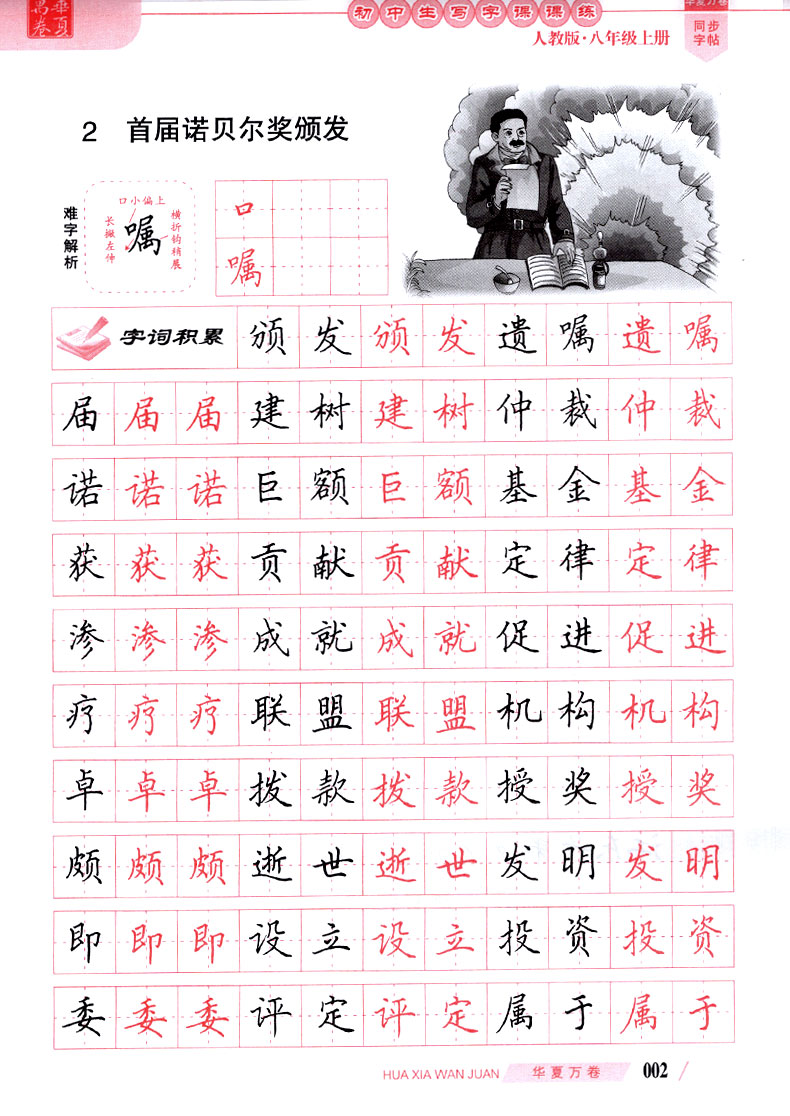 华夏万卷
初中生写字课课练
华夏万卷
人教版·八年级上册
同步
字帖
2 首届诺贝尔奖颁发
难字解析
口小偏上
长撇左伸
嘱
横折钩稍展
口
嘱
字词积累 颁 发 颁 发 遗 嘱 遗 嘱
届 届 届 建 树 建 树 仲 裁 仲 裁
诺 诺 诺 巨 额 巨 额 基 金 基 金
获 获 获 贡 献 贡 献 定 律 定 律
渗 渗 渗 成 就 成 就 促 进 促 进
疗 疗 疗 联 盟 联 盟 机 构 机 构
卓 卓 卓 拨 款 拨 款 授 奖 授 奖
颇 颇 颇 逝 世 逝 世 发 明 发 明
即 即 即 设 立 设 立 投 资 投 资
委 委 委 评 定 评 定 属 于 属 于
HUA XIA WAN JUAN 华夏万卷 002